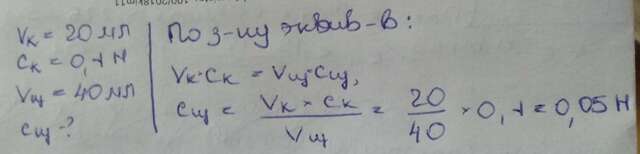 Vк = 20 мл
Cк = 0,1 Н
Vщ = 40 мл
Cщ - ?
По з-ну эквив-в:
Vк·Cк = Vщ·Cщ,
Cщ = Vк × Cк / Vщ = 20 / 40 × 0,1 = 0,05 Н